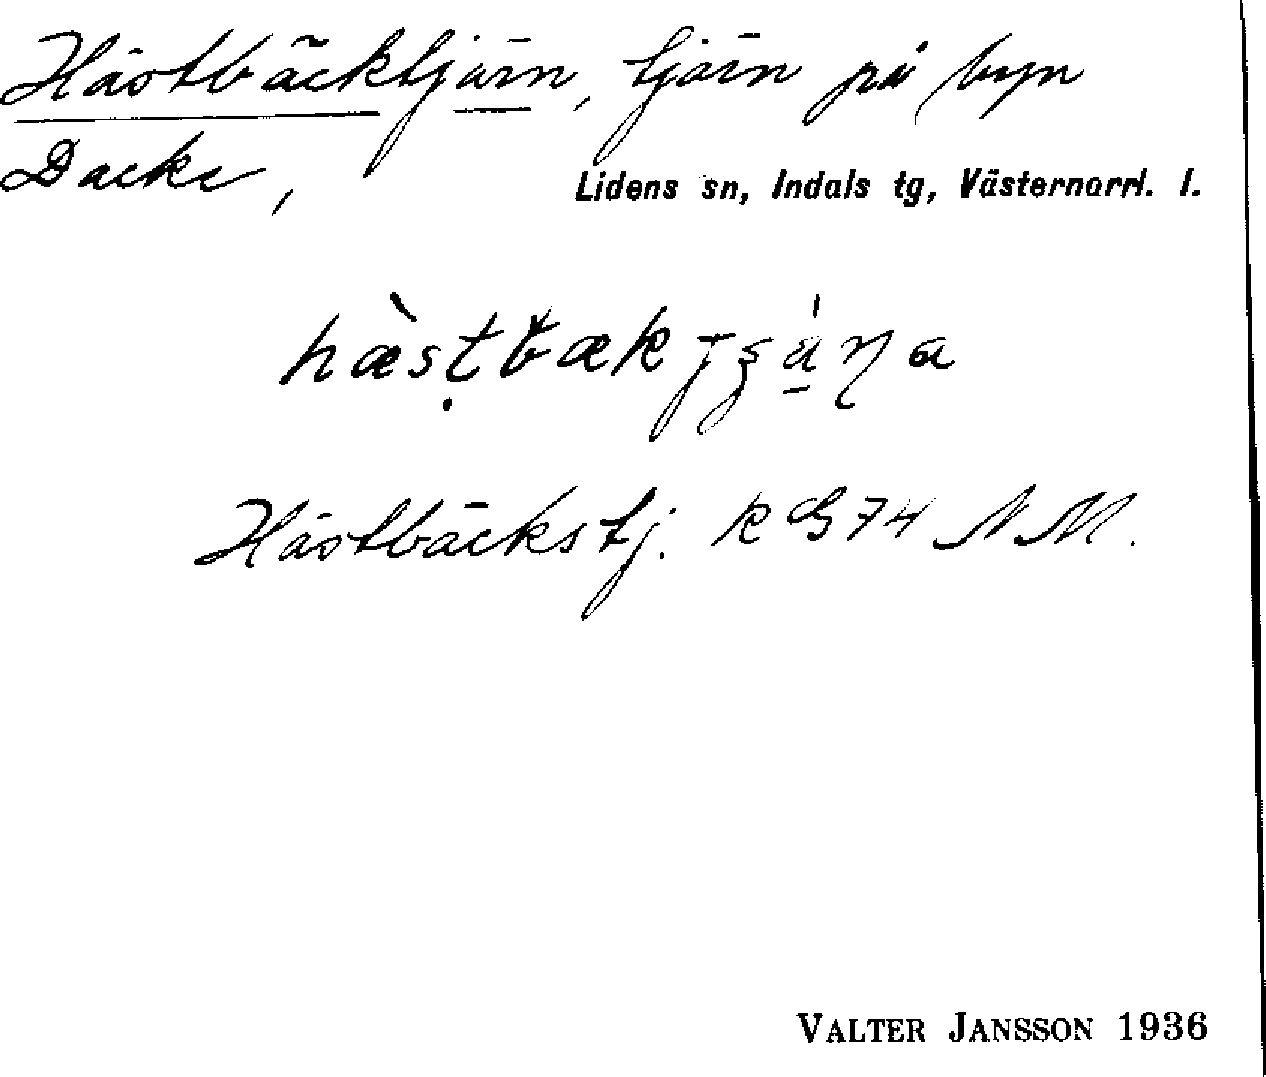 Hästbäcktjärn, tjärn på byn
Dacke,
Lidens sn, Indals tg, Västernorrl. l.
hæ̀sṭbækʈʂa̱ɳa
Hästbäckstj. k G74 NM.
VALTER JANSSON 1936